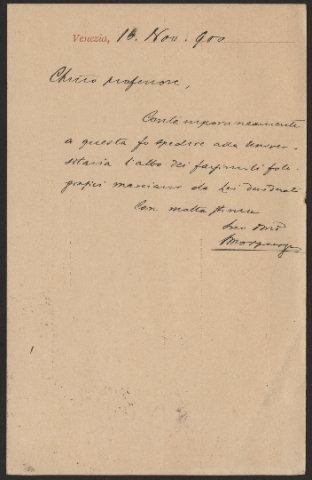 Venezia, 13. Nov. 900
Chiar.o professore,
Contemporaneamente
a questa fo spedire alla Univer-
sitaria l'albo dei facsimili foto-
grafici marciani da Lei desiderati
Con molta stima
Suo
SMorpurgo